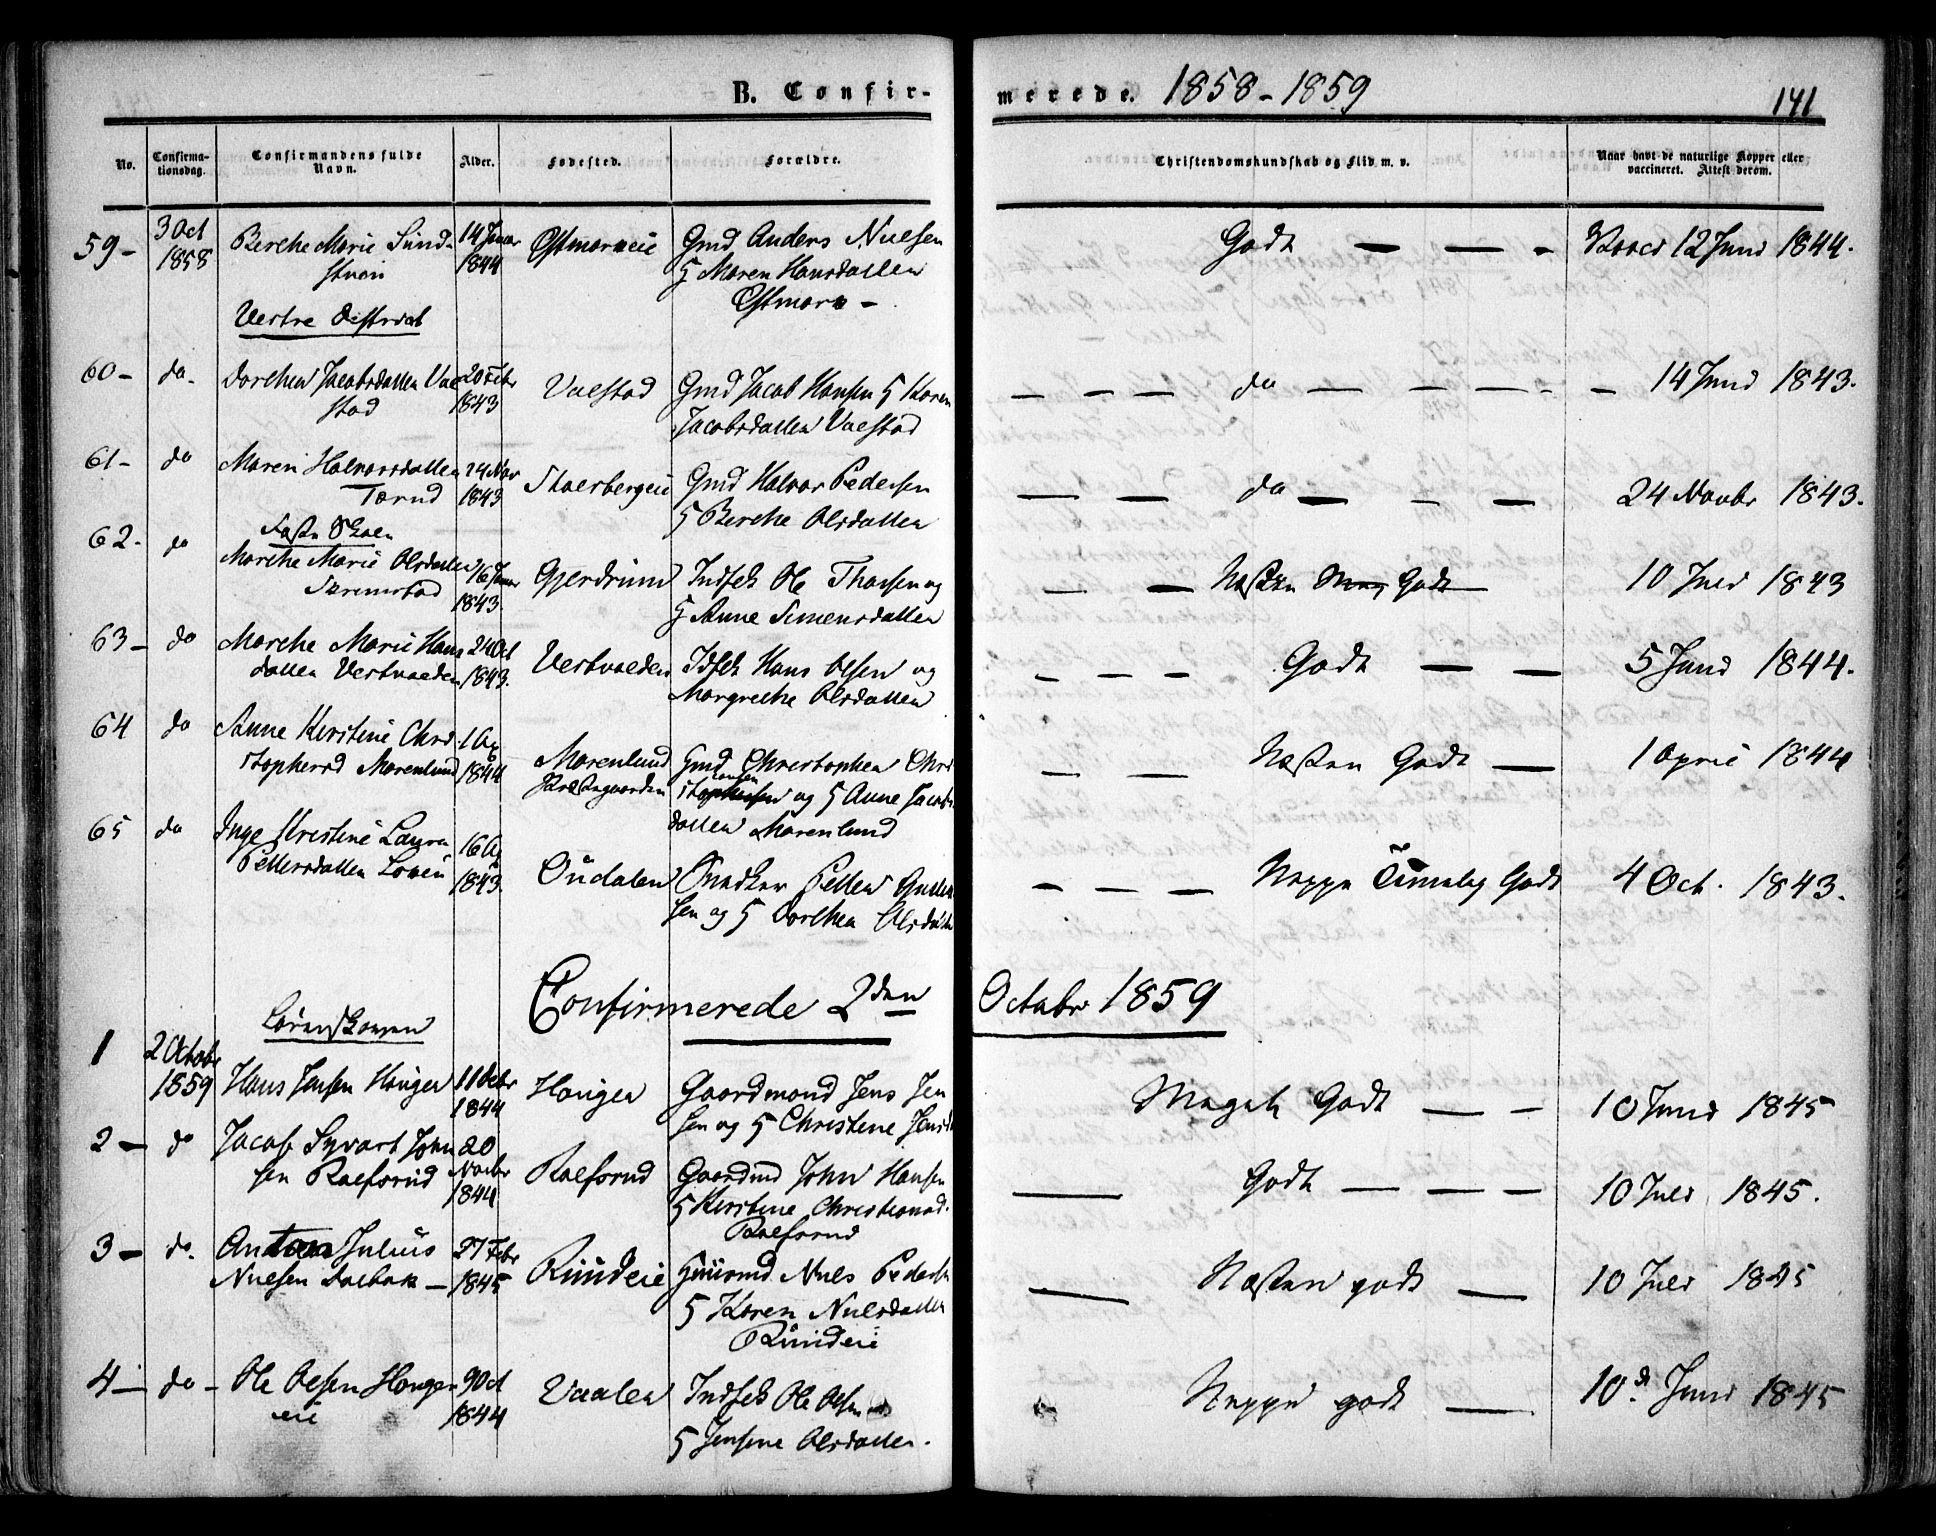 B. Confir-
merede. 1858-1859
141
No.
Confirma-
tionsdag.
Confirmandens fulde
Navn.
Alder.
Fødested.
Forældre.
Christendomskundskab og Flid m. v.
Naar havt de naturlige Kopper eller
vaccineret. Attest derom.
59-
3 Oct
1858
Berthe Marie Sund-
stuen
14 Januar
1844
Østmarkeie
Gmd Anders Nielsen
H Maren Hansdatter
Østmark -
Godt
Vacc 12 Juni 1844.
Vestre District
60-
do.
Dorthea Jacobsdatter Val-
stad
20 Febr
1843
Valstad
Gmd Jacob Hansen H Karen
Jacobsdatter Valstad
do
14 Juni 1843.
61-
do
Maren Halvorsdatter
Tærud
24 Nov
1843
Skaerbergeie
Gmd Halvor Pedersen
H Berthe Olsdatter
do
24 Novbr 1843.
62.
do
Faste Skole
Marthe Marie Olsdatter
Skrimstad
16 Januar
1843.
Gjerdrum
Indsek Ole Thorsen og
H Anne Simensdatter
Næsten Meg Godt
10 Juli 1843
63-
do
Marthe Marie Hans
datter Vestvolden
24 Oct
1843.
Vestvolden
Idsek Hans Olsen og
Margrethe Olsdatter
Godt
5 Juni 1844.
64
do
Anne Kirstine Chri
stophersd Marenlund
1 Ap
1844
Marenlund
Præstegaarden
Gmd Christopher Chri
stophersen og H Anne Jacobs
datter Marenlund
Næsten Godt
1 April 1844
65
do
Inge Kristine Laura
Pettersdatter Loeni
16 Ag
1843.
Øudalen
Snedker Petter Gulbr
sen og H Dorthea Olsdatter
Neppe Temmelig Godt
4 Oct. 1843.
Confirmerede 2den
Octobr 1859
Lørenskogen
1
2 Octobr
1859
Hans Jensen Haugen
11 Febr
1844
Haugen
Gaardmand Jens Jen
sen og H Christine Jensd
Meget Godt
10 Juni 1845
2-
do
Jacob Syvart John
sen Ralfsrud
20
Novbr
1844
Ralfsrud
Gaardmd John Hansen
H Kirstine Christiansd.
Ralfsrud
Godt
10 Juli 1845.
3-
do.
Anton Julius
Nielsen Dalbak -
27 Febr
1845
Rundeie
Huusmd Niels Pedersen
H Karen Nielsdatter
Rundeie
Næsten godt
10 Juli 1845
4-
do-
Ole Olsen Haugen
eie
9 Oct
1844
Vaalen
Indsek Ole Olsen
H Jensine Olsdatter.
Neppe godt
10d. Juni 1845